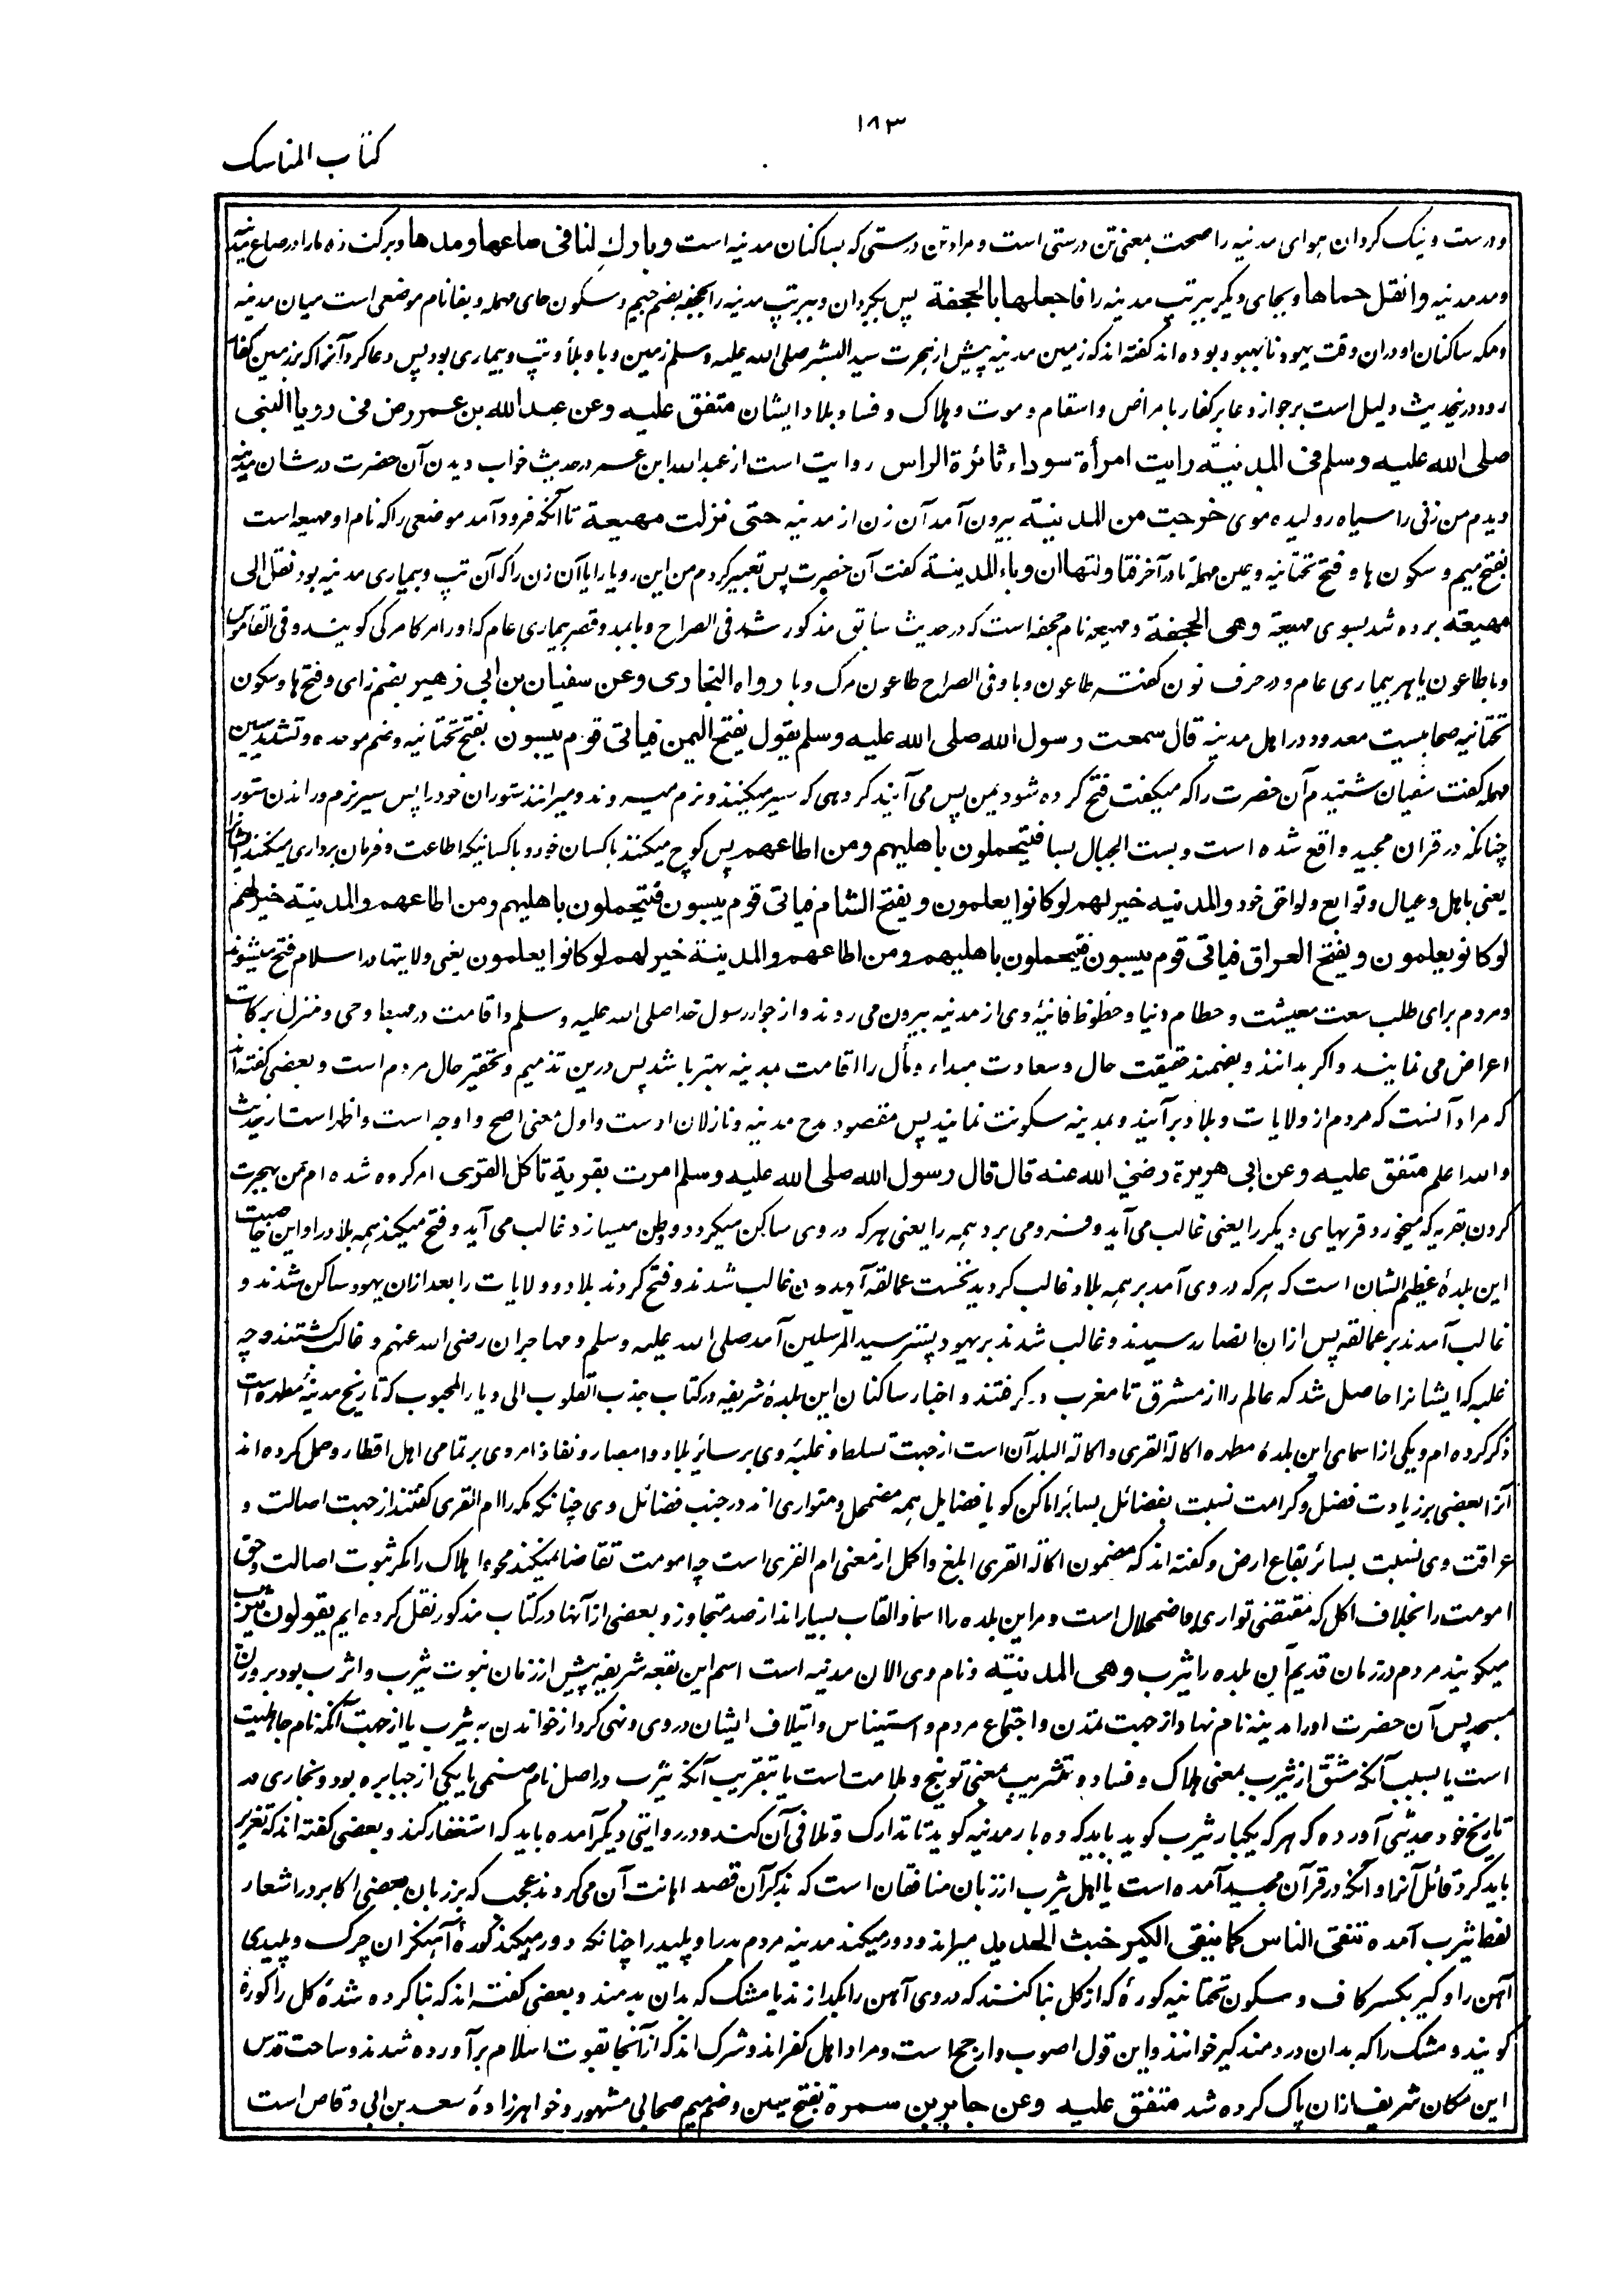 ۱۸۳
کتاب المناسک
و درست و نیک گردان هوای مدینه را صحت بمعنی تن درستی است و مراد تن درستی که بساکنان مدینه است وبارك لنا فی صاعها ومدها و برکت ده مارا در صاع مدینه
و مد مدینه وانقل حماها و بجای دیگر ببر تپ مدینه را فاجعلها بالجحفة پس بگردان و ببر تپ مدینه را بجحفه بضم جیم و سکون حای مهمله و بفا نام موضعی است میان مدینه
و مکه ساکنان او دران وقت یهود نابهبود بوده اند گفته اند که زمین مدینه پیش از هجرت سید البشر صلی الله علیه وسلم زمین و با و بلا و تپ و بیماری بود پس دعا کرد آنرا که بزمین کفار
رود و درینحدیث دلیل است بر جواز دعا بر کفار بامراض و اسقام و موت و هلاک و فساد بلاد ایشان متفق علیه وعن عبد الله بن عمر رض فی رویا النبی
صلی الله علیه وسلم فی المدینة رایت امرأة سوداء ثائرة الراس روایت است از عبد الله ابن عمر در حدیث خواب دیدن آن حضرت در شان مدینه
دیدم من زنی را سیاه رولیده موی خرجت من المدینة بیرون آمد آن زن از مدینه حتی نزلت مهیعة تا آنکه فرود آمد موضعی را که نام او مهیعه است
بفتح میم و سکون ها و فتح تحتانیه و عین مهمله تا در آخر فتاولتها ان وباء المدینة گفت آن حضرت پس تعبیر کردم من این رویا را یا آن زن را که آن تپ و بیماری مدینه بود نقل الی
مهیعة برده شد بسوی مهیعة وهی الجحفة و مهیعه نام جحفه است که در حدیث سابق مذکور شد فی الصراح وبا بمد و قصر بیماری عام که او را مرگامرگی گویند و فی القاموس
وبا طاعون یا هر بیماری عام و در حرف نون گفته طاعون وبا و فی الصراح طاعون مرگ وبا رواه البخاری وعن سفیان بن ابی زهیر بضم زای و فتح ها و سکون
تحتانیه صحابیست معدود در اهل مدینه قال سمعت رسول الله صلی الله علیه وسلم یقول یفتح الیمن فیاتی قوم یبسون بفتح تحتانیه و ضم موحده و تشدید سین
مهمله گفت سفیان شنیدم آن حضرت را که میگفت فتح کرده شود یمن پس می آیند گروهی که سیر میکنند و نرم میروند و میرانند ستوران خود را پس سیر نرم و راندن ستور
چنانکه در قران مجید واقع شده است و بست الجبال بسا فیتحملون باهلیهم ومن اطاعهم پس کوچ میکنند باکسان خود و باکسانیکه اطاعت و فرمان برداری میکنند ایشانرا
یعنی باهل و عیال و توابع و لواحق خود والمدینه خیر لهم لو کانوا یعلمون ویفتح الشام فیاتی قوم یبسون فیتحملون باهلیهم ومن اطاعهم والمدینة خیر لهم
لو کانو یعلمون ویفتح العراق فیاتی قوم یبسون فیتحملون باهلیهم ومن اطاعهم والمدینة خیر لهم لو کانوا یعلمون یعنی ولایتها در اسلام فتح میشوند
و مردم برای طلب سعت معیشت و حطام دنیا و حظوظ فانیۀ وی از مدینه بیرون می روند و از جوار رسول خدا صلی الله علیه وسلم و اقامت در مهبط وحی و منزل برکات
اعراض می نمایند و اگر بدانند و بفهمند حقیقت حال و سعادت مبداء و مآل را اقامت مدینه بهتر باشد پس درین تذمیم و تحقیر حال مردم است و بعضی گفته اند
که مراد آنست که مردم از ولایات و بلاد برآیند و بمدینه سکونت نمایند پس مقصود مدح مدینه و نازلان اوست و اول معنی اصح و اوجه است و اظهر است از حدیث
والله اعلم متفق علیه وعن ابی هریرة رضی الله عنه قال قال رسول الله صلی الله علیه وسلم امرت بقریة تاکل القری امر کرده شده ام من بهجرت
کردن بقریه که میخورد قریهای دیگر را یعنی غالب می آید و فرو می برد همه را یعنی هر که در وی ساکن میگردد و وطن میسازد غالب می آید و فتح میکند همه بلاد را و این خاصیت
این بلدۀ عظیم الشان است که هر که در وی آمد بر همه بلاد غالب گردید نخست عمالقه آمدند غالب شدند و فتح کردند بلاد و ولایات را بعد ازان یهود ساکن شدند و
غالب آمدند بر عمالقه پس ازان انصار رسیدند و غالب شدند بر یهود پستر سید المرسلین آمد صلی الله علیه وسلم و مهاجران رضی الله عنهم و غالب گشتند و چه
غلبه که ایشانرا حاصل شد که عالم را از مشرق تا مغرب در گرفتند و اخبار ساکنان این بلدۀ شریفه در کتاب جذب القلوب الی دیار المحبوب که تاریخ مدینۀ مطهره است
ذکر کرده ام و یکی از اسمای این بلدۀ مطهره اکالة القری و اکالة البلدان است از جهت تسلط و غلبۀ وی بر سائر بلاد و امصار و نفاذ امر وی بر تمامی اهل اقطار و حمل کرده اند
آنرا بعضی بر زیادت فضل و کرامت نسبت بفضائل بسائر اماکن گویا فضایل همه مضمحل و متواری اند در جنب فضائل وی چنانکه مکه را ام القری گفتند از جهت اصالت و
عراقت وی نسبت بسائر بقاع ارض و گفته اند که مضمون اکالة القری ابلغ و اکمل از معنی ام القری است چه امومت تقاضا نمیکند محو و اهلاک را مگر ثبوت اصالت و حق
امومت را بخلاف اکل که مقتضی تواری و اضمحلال است و مر این بلده را اسما و القاب بسیار اند از صد متجاوز و بعضی از آنها در کتاب مذکور نقل کرده ایم یقولون یثرب
میگویند مردم در زمان قدیم این بلده را یثرب وهی المدینة و نام وی الان مدینه است اسم این بقعه شریفه پیش از زمان نبوت یثرب و اثرب بود بر وزن
مسجد پس آن حضرت او را مدینه نام نهاد از جهت تمدن و اجتماع مردم و استیناس و ایتلاف ایشان در وی و نهی کرد از خواندن به یثرب یا از جهت آنکه نام جاهلیت
است یا بسبب آنکه مشتق از ثرب بمعنی هلاک و فساد و تثریب بمعنی توبیخ و ملامت است یا بتقریب آنکه یثرب در اصل نام صنمی یا یکی از جبابره بود و بخاری در
تاریخ خود حدیثی آورده که هر که یکبار یثرب گوید باید که ده بار مدینه گوید تا تدارک و تلافی آن کند و در روایتی دیگر آمده باید که استغفار کند و بعضی گفته اند که تعزیر
باید کرد قائل آنرا و آنکه در قرآن مجید آمده است یا اهل یثرب از زبان منافقان است که بذکر آن قصد اهانت آن می کردند عجب که بر زبان بعضی اکابر در اشعار
لفظ یثرب آمده تنفی الناس کما ینفی الکیر خبث الحدید میراند و دور میکند مدینه مردم بد را و پلید را چنانکه دور میکند کورۀ آهنگران چرک و پلیدی
آهن را و کیر بکسر کاف و سکون تحتانیه کورۀ که از گل بنا کنند که در وی آهن را بگدازند یا مشک که بدان بدمند و بعضی گفته اند که بنا کرده شدۀ گل را کوره
گویند و مشک را که بدان در دمند کیر خوانند و این قول اصوب و ارجح است و مراد اهل کفر اند و شرک اند که از آنجا بقوت اسلام برآورده شدند و ساحت قدس
این مکان شریف ازان پاک کرده شد متفق علیه وعن جابر بن سمرة بفتح سین و ضم میم صحابی مشهور و خواهرزادۀ سعد بن ابی وقاص است